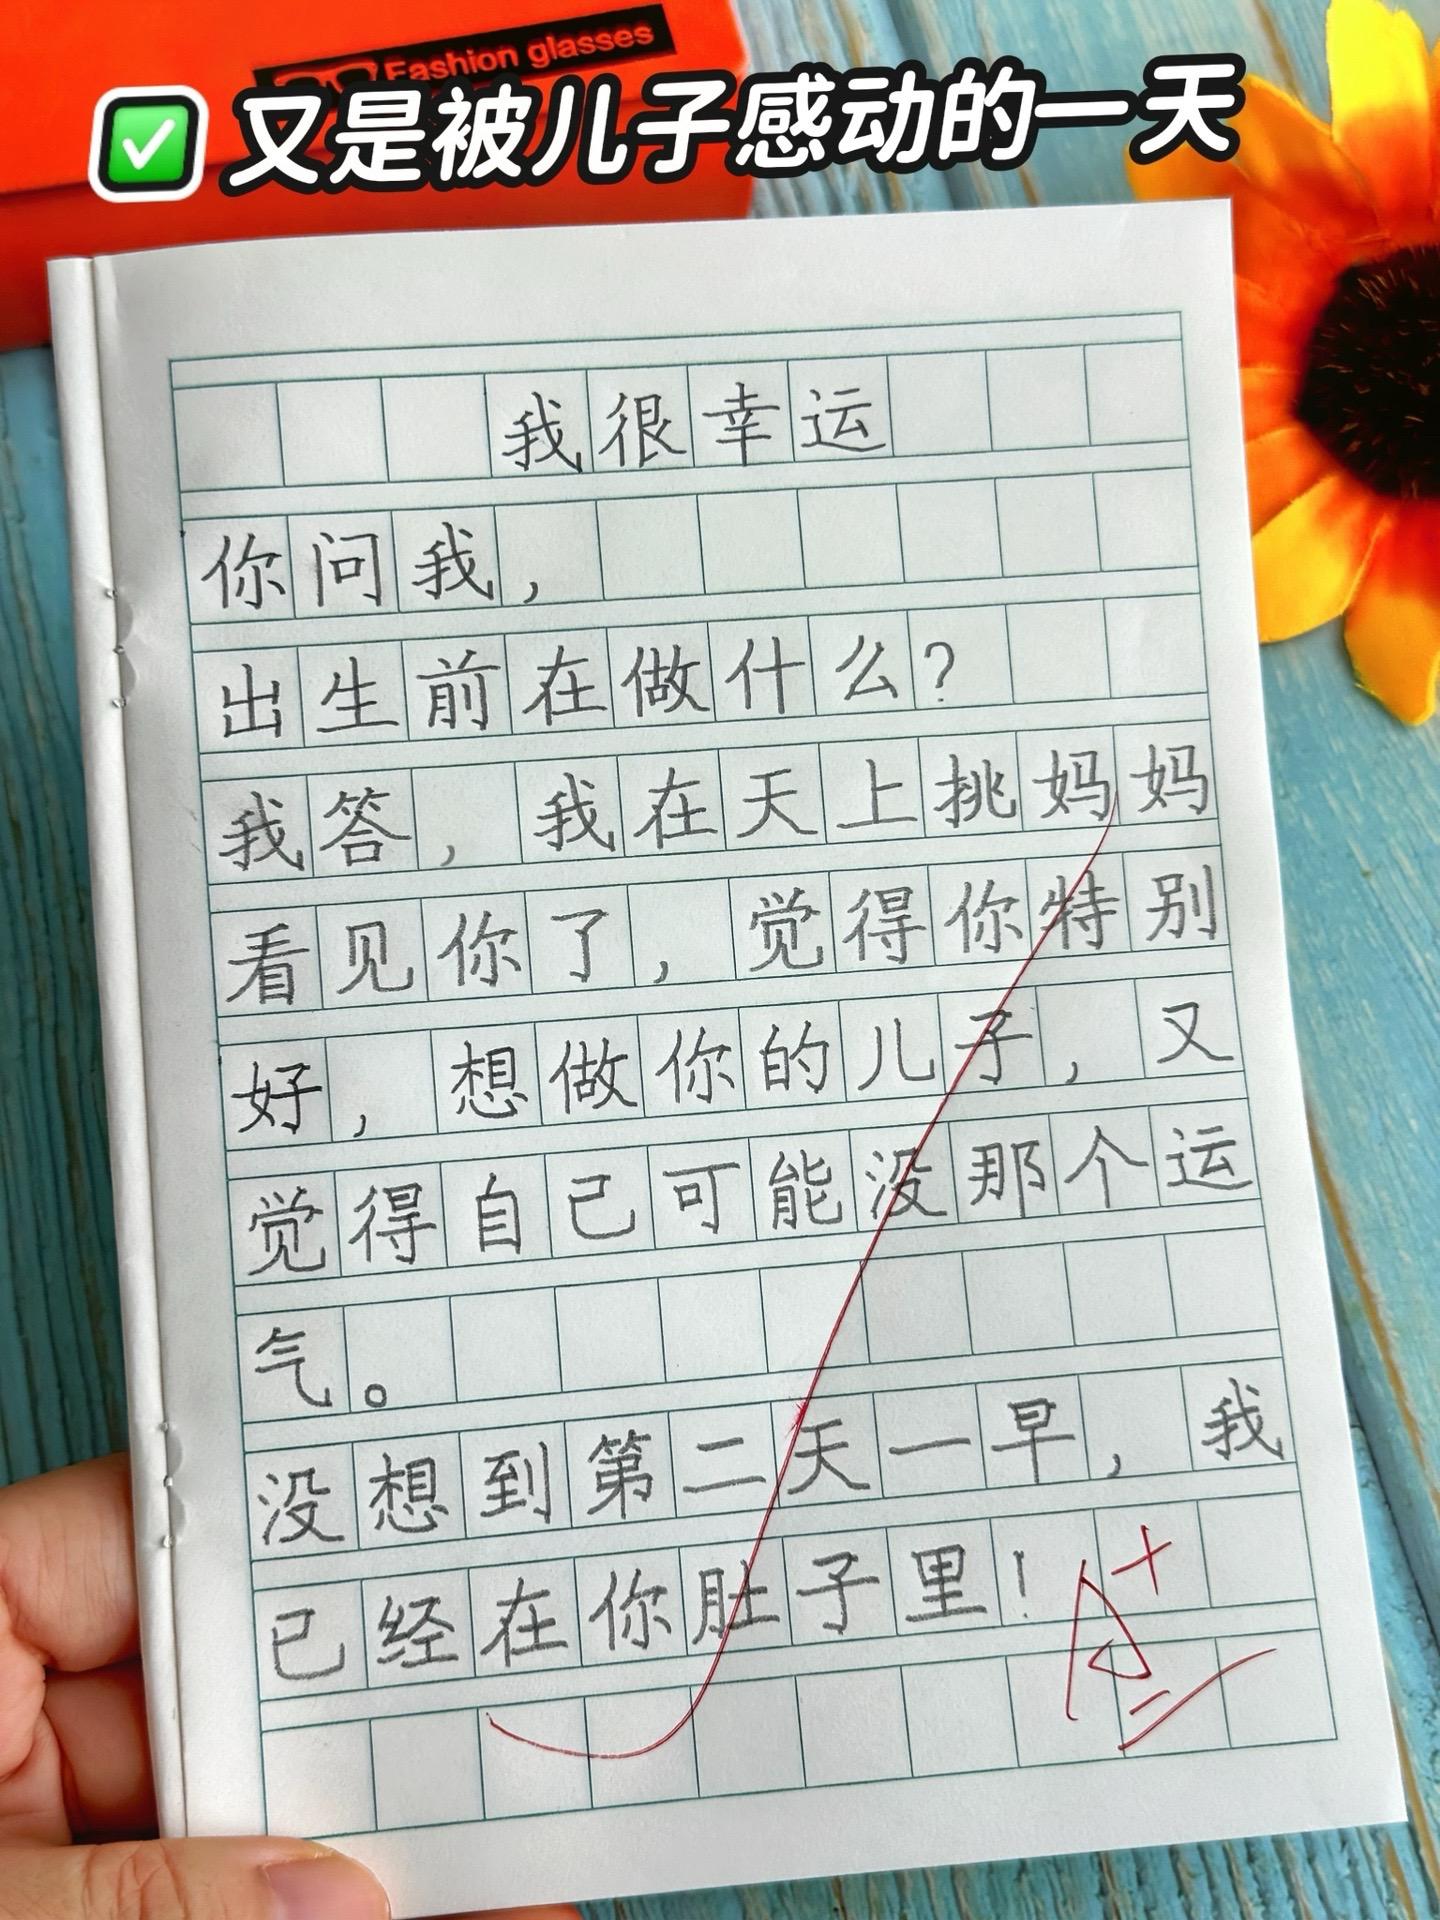 Fashion glasses
✅又是被儿子感动的一天
我很幸运
你问我，
出生前在做什么？
我答，我在天上挑妈妈
看见你了，觉得你特别
好，想做你的儿子，又
觉得自己可能没那个运
气。
没想到第二天一早，我
已经在你肚子里！
A+